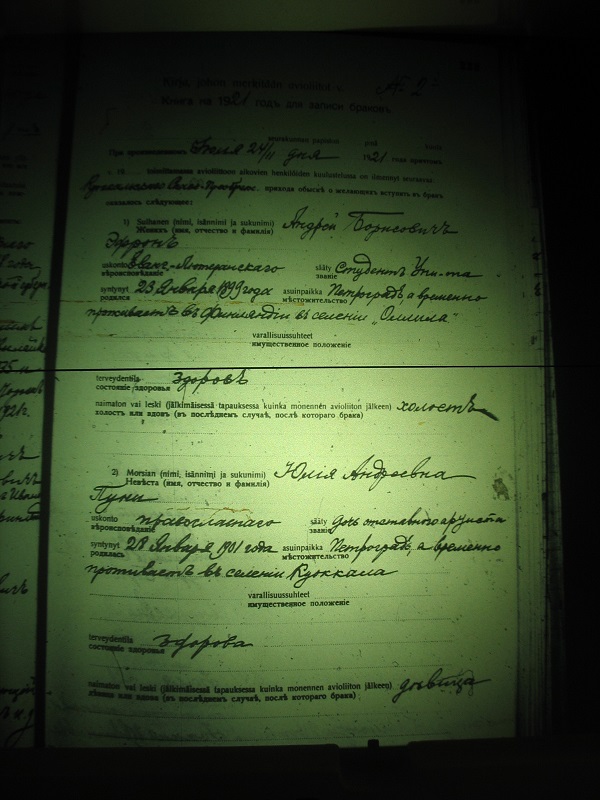 Kirja, johon merkitään avioliitot v.
№ 2
Книга на 1921 годъ для записи браковъ.
vuorokauden
При производимомъ Іюля 24/11 дня 1921 года причтомъ
Куоккальской приходѣ обыскѣ о желающихъ вступить въ бракъ
оказалось слѣдующее:
1) Sulhanen (nimi, isännimi ja sukunimi) Андрей Борисовичъ
Женихъ (имя, отчество и фамилія)
Эфронъ
uskonto Еванг.-Лютеранскаго sääty Студентъ Уни-та
вѣроисповѣданіе званіе
syntynyt 23 Января 1899 года asuinpaikka Петроградъ, а временно
родился мѣстожительство
проживаетъ въ Финляндіи въ селеніи „Оллила"
varallisuussuhteet
имущественное положеніе
terveydentila здоровъ
состояніе здоровья
naimaton vai leski (jälkimäisessä tapauksessa kuinka monennen avioliiton jälkeen) холостъ
холостъ или вдовъ (въ послѣднемъ случаѣ, послѣ котораго брака)
2) Morsian (nimi, isännimi ja sukunimi) Юлія Андреевна
Невѣста (имя, отчество и фамилія)
Пуни
uskonto православнаго sääty дочь отставного
вѣроисповѣданіе званіе
syntynyt 28 Января 1901 года asuinpaikka Петроградъ, а временно
родилась мѣстожительство
проживаетъ въ селеніи Куоккала
varallisuussuhteet
имущественное положеніе
terveydentila здорова
состояніе здоровья
naimaton vai leski (jälkimäisessä tapauksessa kuinka monennen avioliiton jälkeen) дѣвица
дѣвица или вдова (въ послѣднемъ случаѣ, послѣ котораго брака)